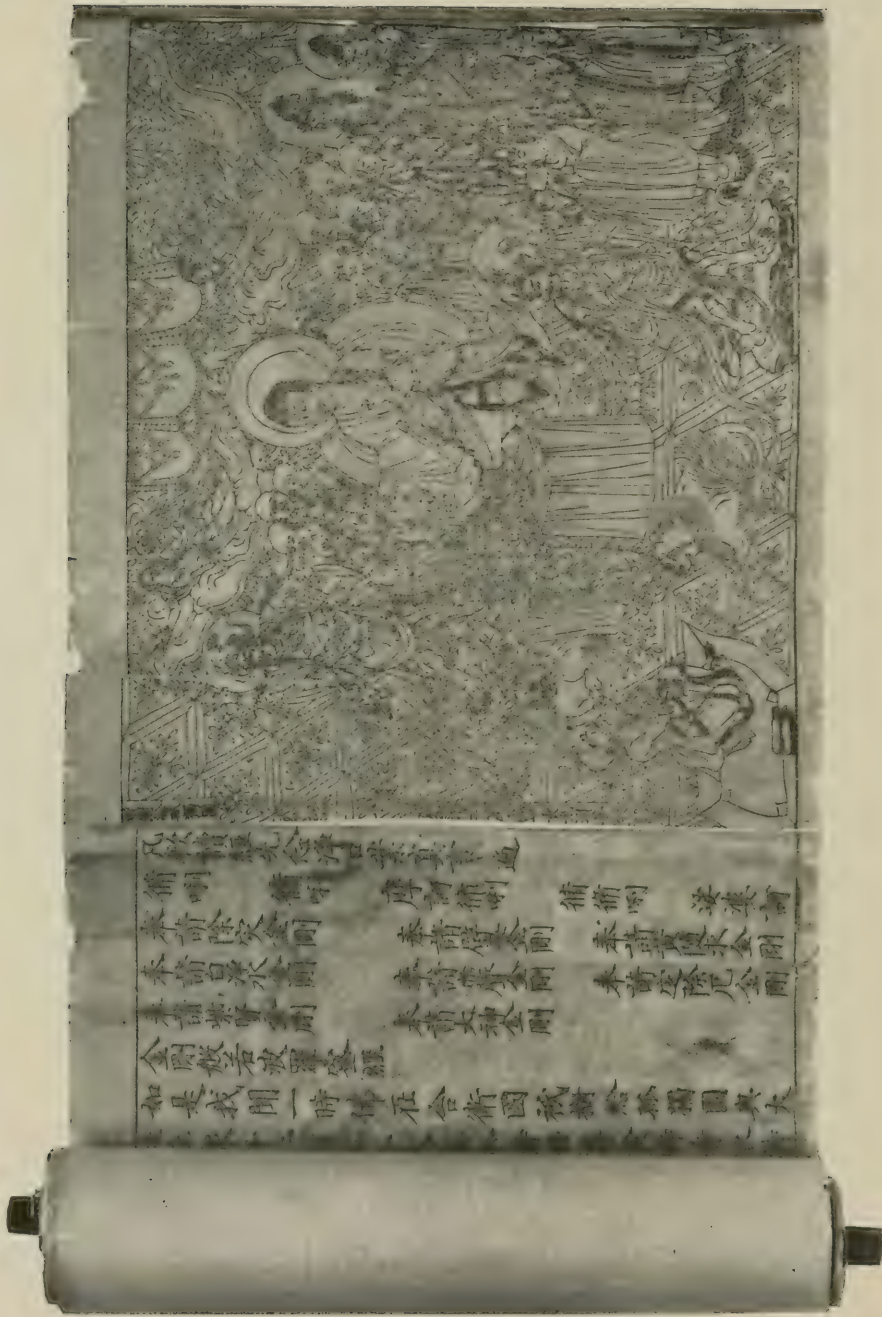 凡欲讀經先念淨口業真言一遍
修唎 修唎 摩訶修唎 修修唎 娑婆訶
奉請除灾金剛 奉請辟毒金剛 奉請黃隨求金剛
奉請白淨水金剛 奉請赤聲金剛 奉請定除厄金剛
奉請紫賢金剛 奉請大神金剛
金剛般若波羅蜜經
如是我聞一時佛在舍衛國祇樹給孤獨園與大